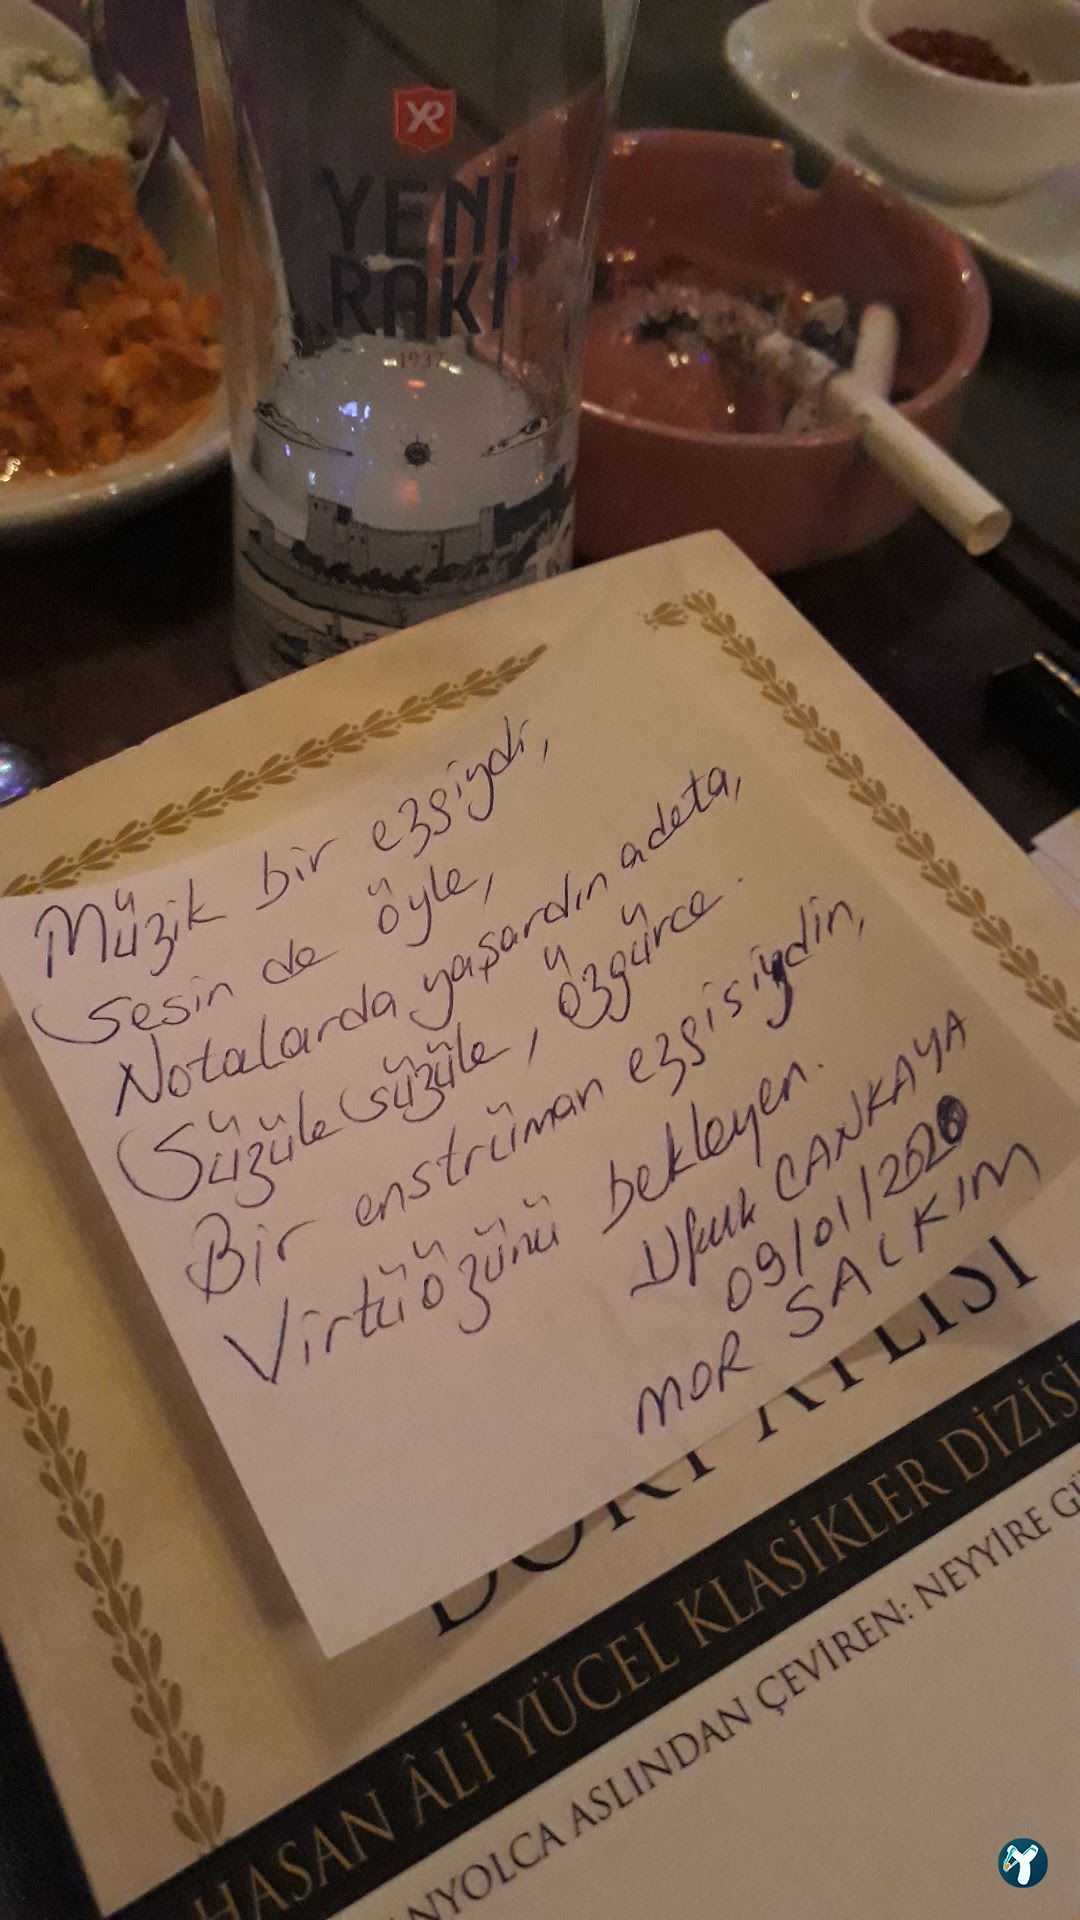 YR
YENİ
RAKI
1937
Müzik bir ezgiydi,
Sesin de öyle,
Notalarda yaşardın adeta,
Süzüle süzüle, özgürce.
Bir enstrüman ezgisiydin,
Virtüözünü bekleyen.
Ufuk CANKAYA
09/01/2020
MOR SALKIM
HASAN ÂLİ YÜCEL KLASİKLER DİZİSİ
ASLINDAN ÇEVİREN: NEYYİRE